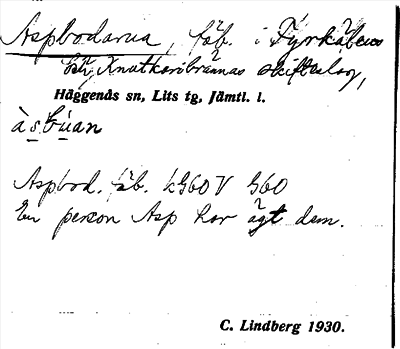 Aspbodarna, fäb. i Fyrkåbens
och Knutkaribrännas skifteslag,
Häggenås sn, Lits tg, Jämtl. l.
àsbúan
Aspbod. fäb. kG60V G60
En person Asp har ägt dem.
C. Lindberg 1930.